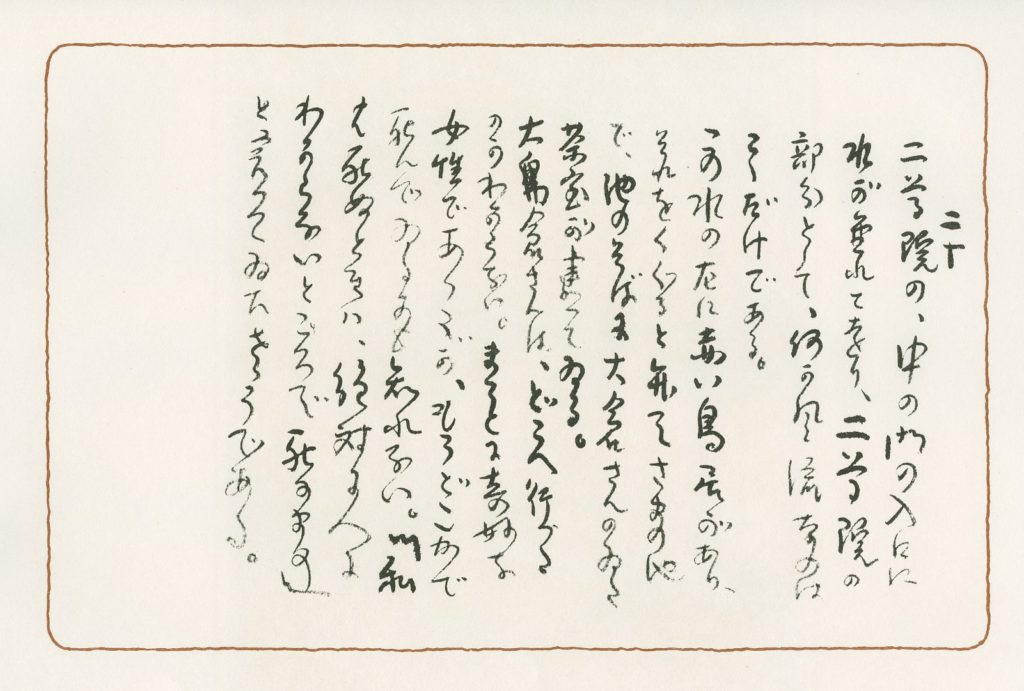 二尊院の、中の門の入口に
水が垂れてをり、二尊院の
部分として、何か風流なのは
こゝだけである。
この水の左に赤い鳥居があり、
それをくゞると弁天さまの池
で、池のそばに大倉さんのゐた
茶室が建つてゐる。
大倉さんは、どこへ行つた
のかわからない。まことに奇妙な
女性であつたが、もうどこかで
死んでゐるかも知れない。「私
は死ぬときは、絶対に人に
わからないところで死にますの」
と言つてゐたさうである。